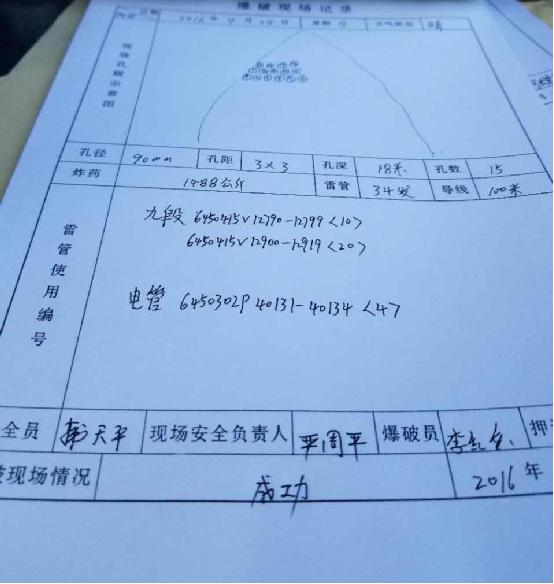 爆破现场记录
日期 2016年4月24日 星期日 天气状况 晴
内容
现场孔眼示意图
孔径 90mm 孔距 3×3 孔深 18米 孔数 15
炸药 1488公斤 雷管 34发 导线 100米
雷管使用编号
九段 6450415V12790-12799<10>
6450415V12900-12919<20>
电管 6450302P40131-40134<4>
全员 天平 现场安全负责人 平周平 爆破员 李 押
现场情况 成功 2016年